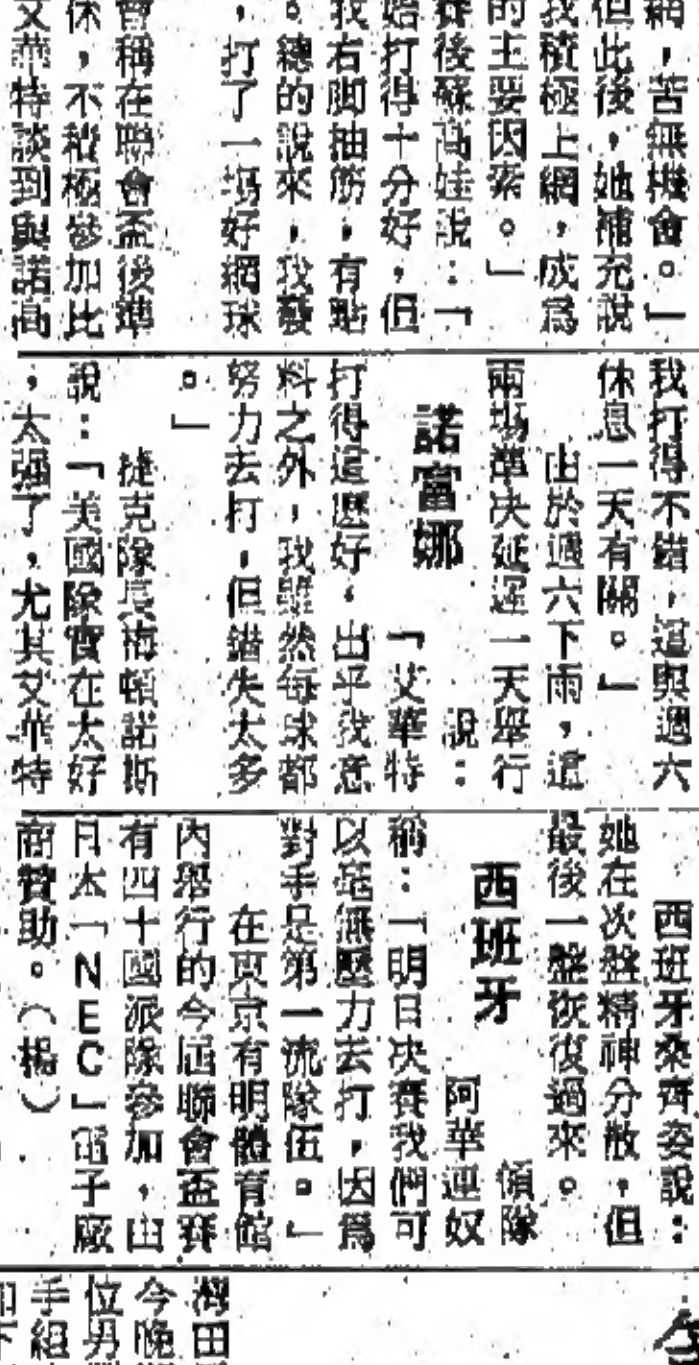 網，苦無機會。」
但此後，她補充說
我積極上網，成爲
的主要因素。」
賽後蘇高娃說：「
始打得十分好，但
我右脚抽筋，有點
。總的說來，我發
，打了一場好網球
會稱在聯會盃後準
休，不積極參加比
艾華特談到與諾高
我打得不錯，這與週六
休息一天有關。」
由於週六下雨，這
兩場準决延遲一天舉行
諾富娜說：
「艾華特
打得這麽好，出乎我意
料之外，我雖然每球都
努力去打，但錯失太多
。」
捷克隊長梅頓諾斯
說：「美國隊實在太好
，太强了，尤其艾華特
西班牙桑齊姿說：
她在次盤精神分散，但
最後一盤恢復過來。
西班牙領隊
阿華連奴
稱：「明日决賽我們可
以話無壓力去打，因爲
對手是第一流隊伍。」
在東京有明體育館
內舉行的今屆聯會盃賽
有四十國派隊參加，由
日本「NEC」電子廠
商贊助。（楊）
今晚
位男
手組